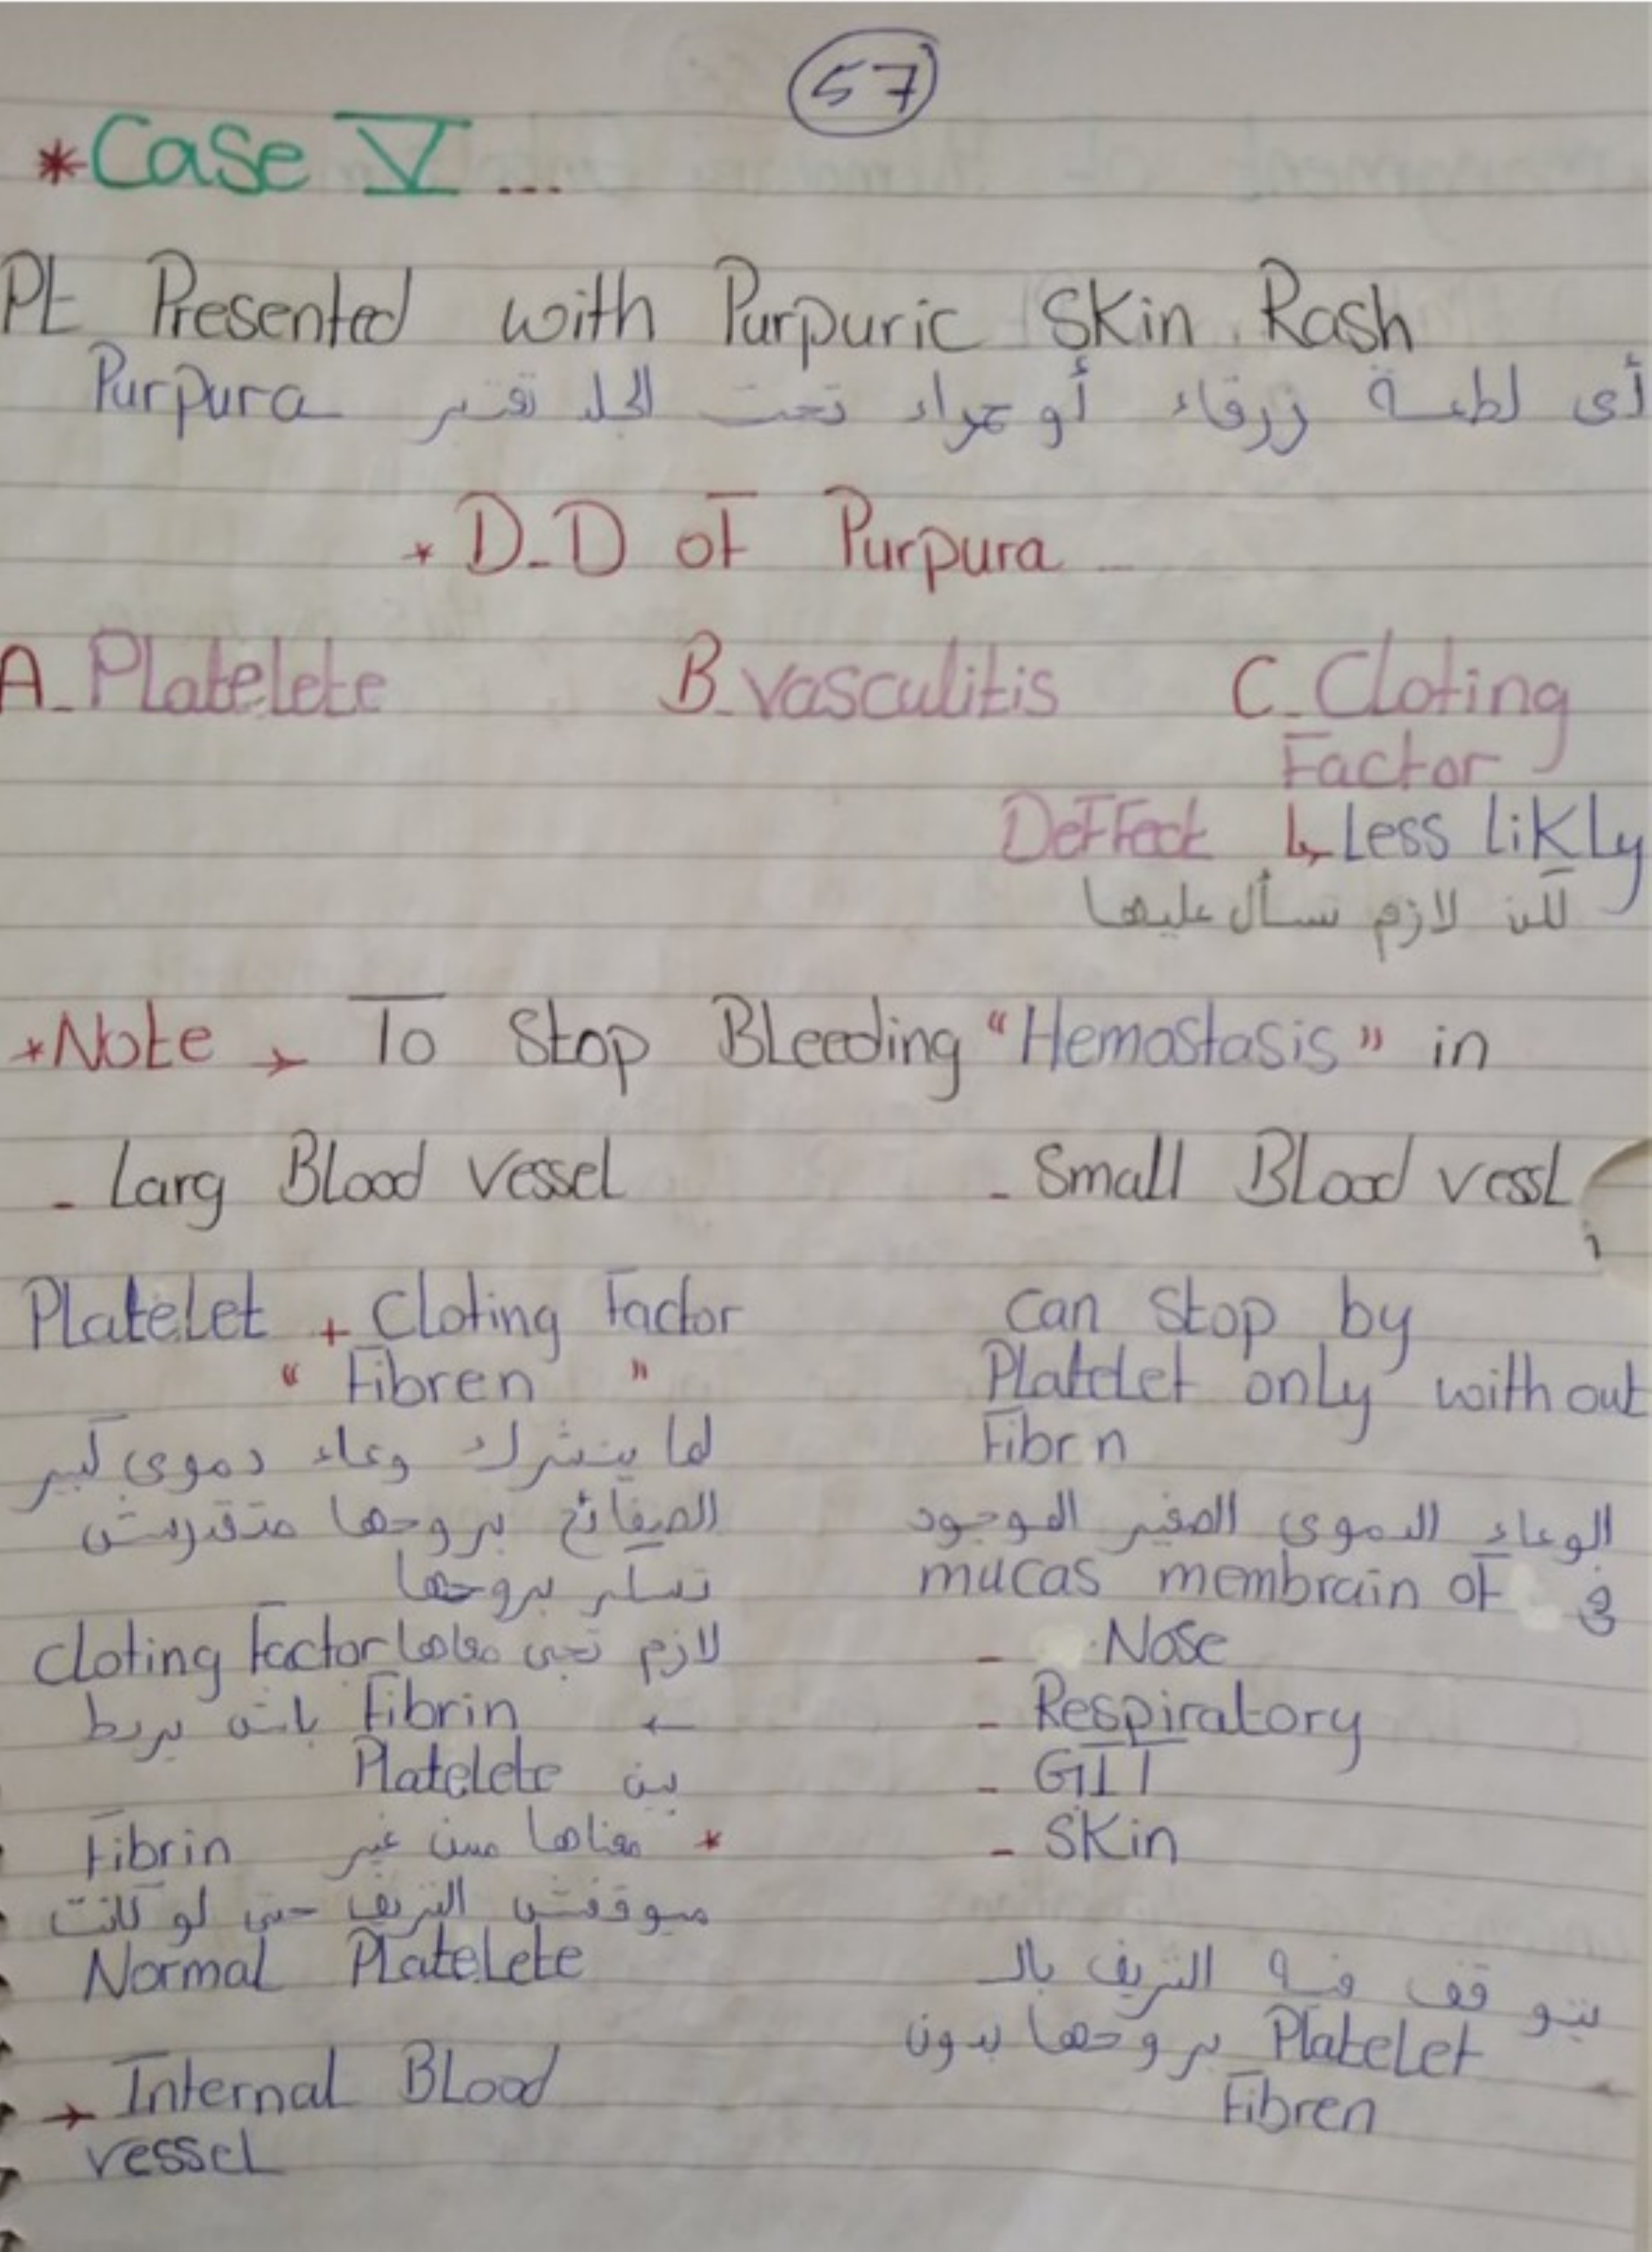 57
*Case V...
Pt Presented with Purpuric Skin Rash
أى لطعة زرقاء أو حمراء تحت الجلد تعتبر Purpura
* D-D of Purpura
A- Platelete
B- vasculitis
C- Cloting
Factor
Deffect ↳ Less likly
لكن لازم نسأل عليها
*Note → To Stop Bleeding "Hemostasis" in
- Larg Blood vessel
Platelet + Cloting factor
" Fibren "
لما ينشرك وعاء دموي كبير
الصفائح بروحها متقدرش
تسكر بروحها
لازم تجى معاها cloting factor
← Fibrin باش يربط
بين Platelete
* معناها من غير Fibrin
ميوقفش النزيف حتى لو كانت
Normal Platelete
→ Internal Blood
vessel
- Small Blood vessl
can stop by
Platelet only without
Fibrn
الوعاء الدموى الصغير الموجود
فى mucas membrain of
- Nose
- Respiratory
- GIT
- Skin
يتوقف فيه النزيف بالـ
Platelet بروحها بدون
Fibren